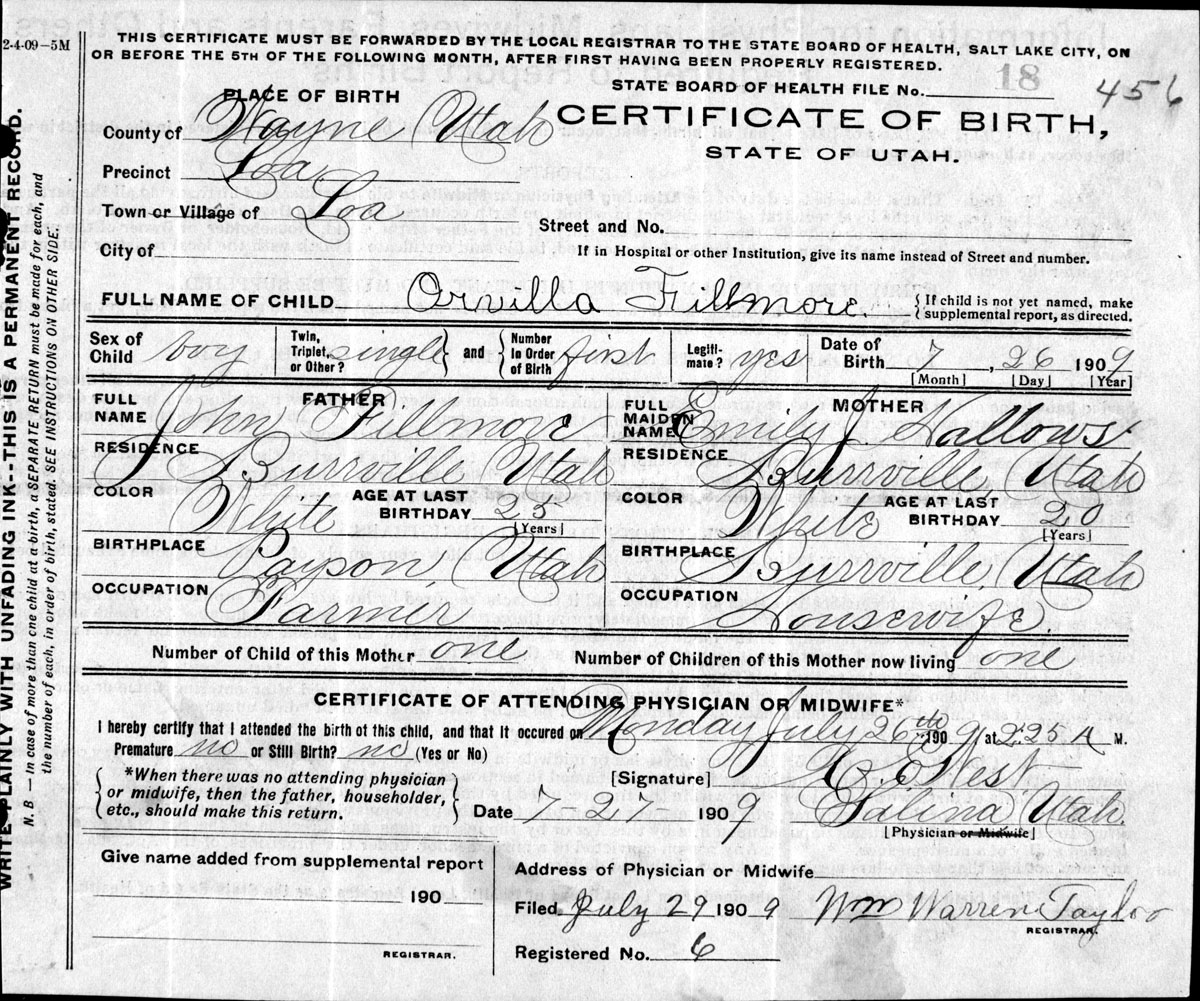 2-4-09—5M
THIS CERTIFICATE MUST BE FORWARDED BY THE LOCAL REGISTRAR TO THE STATE BOARD OF HEALTH, SALT LAKE CITY, ON
OR BEFORE THE 5TH OF THE FOLLOWING MONTH, AFTER FIRST HAVING BEEN PROPERLY REGISTERED.
18
STATE BOARD OF HEALTH FILE No. 456
PLACE OF BIRTH
CERTIFICATE OF BIRTH,
STATE OF UTAH.
County of Wayne Utah
Precinct Loa
Town or Village of Loa
Street and No.
City of
If in Hospital or other Institution, give its name instead of Street and number.
FULL NAME OF CHILD Orvilla Fillmore. { If child is not yet named, make supplemental report, as directed.
Sex of Child boy Twin, Triplet, or Other? single } and { Number In Order of Birth first Legitimate? yes Date of Birth 7, 26 1909
[Month] [Day] [Year]
FATHER
FULL NAME John Fillmore
RESIDENCE Burrville Utah
COLOR White AGE AT LAST BIRTHDAY 25 [Years]
BIRTHPLACE Payson, Utah
OCCUPATION Farmer
MOTHER
FULL MAIDEN NAME Emily J Hallows
RESIDENCE Burrville, Utah
COLOR White AGE AT LAST BIRTHDAY 20 [Years]
BIRTHPLACE Burrville, Utah
OCCUPATION Housewife.
Number of Child of this Mother one Number of Children of this Mother now living one
CERTIFICATE OF ATTENDING PHYSICIAN OR MIDWIFE*
I hereby certify that I attended the birth of this child, and that it occured on Monday July 26th 1909 at 2.25 A M.
Premature no or Still Birth? no (Yes or No)
{ *When there was no attending physician or midwife, then the father, householder, etc., should make this return. }
[Signature] West
Date 7-27 1909 Salina Utah.
[Physician or Midwife]
Give name added from supplemental report
190
REGISTRAR.
Address of Physician or Midwife
Filed July 29 1909 Wm Warren Taylor
REGISTRAR.
Registered No. 6
WRITE PLAINLY WITH UNFADING INK--THIS IS A PERMANENT RECORD.
N. B. — In case of more than one child at a birth, a SEPARATE RETURN must be made for each, and
the number of each, in order of birth, stated. SEE INSTRUCTIONS ON OTHER SIDE.